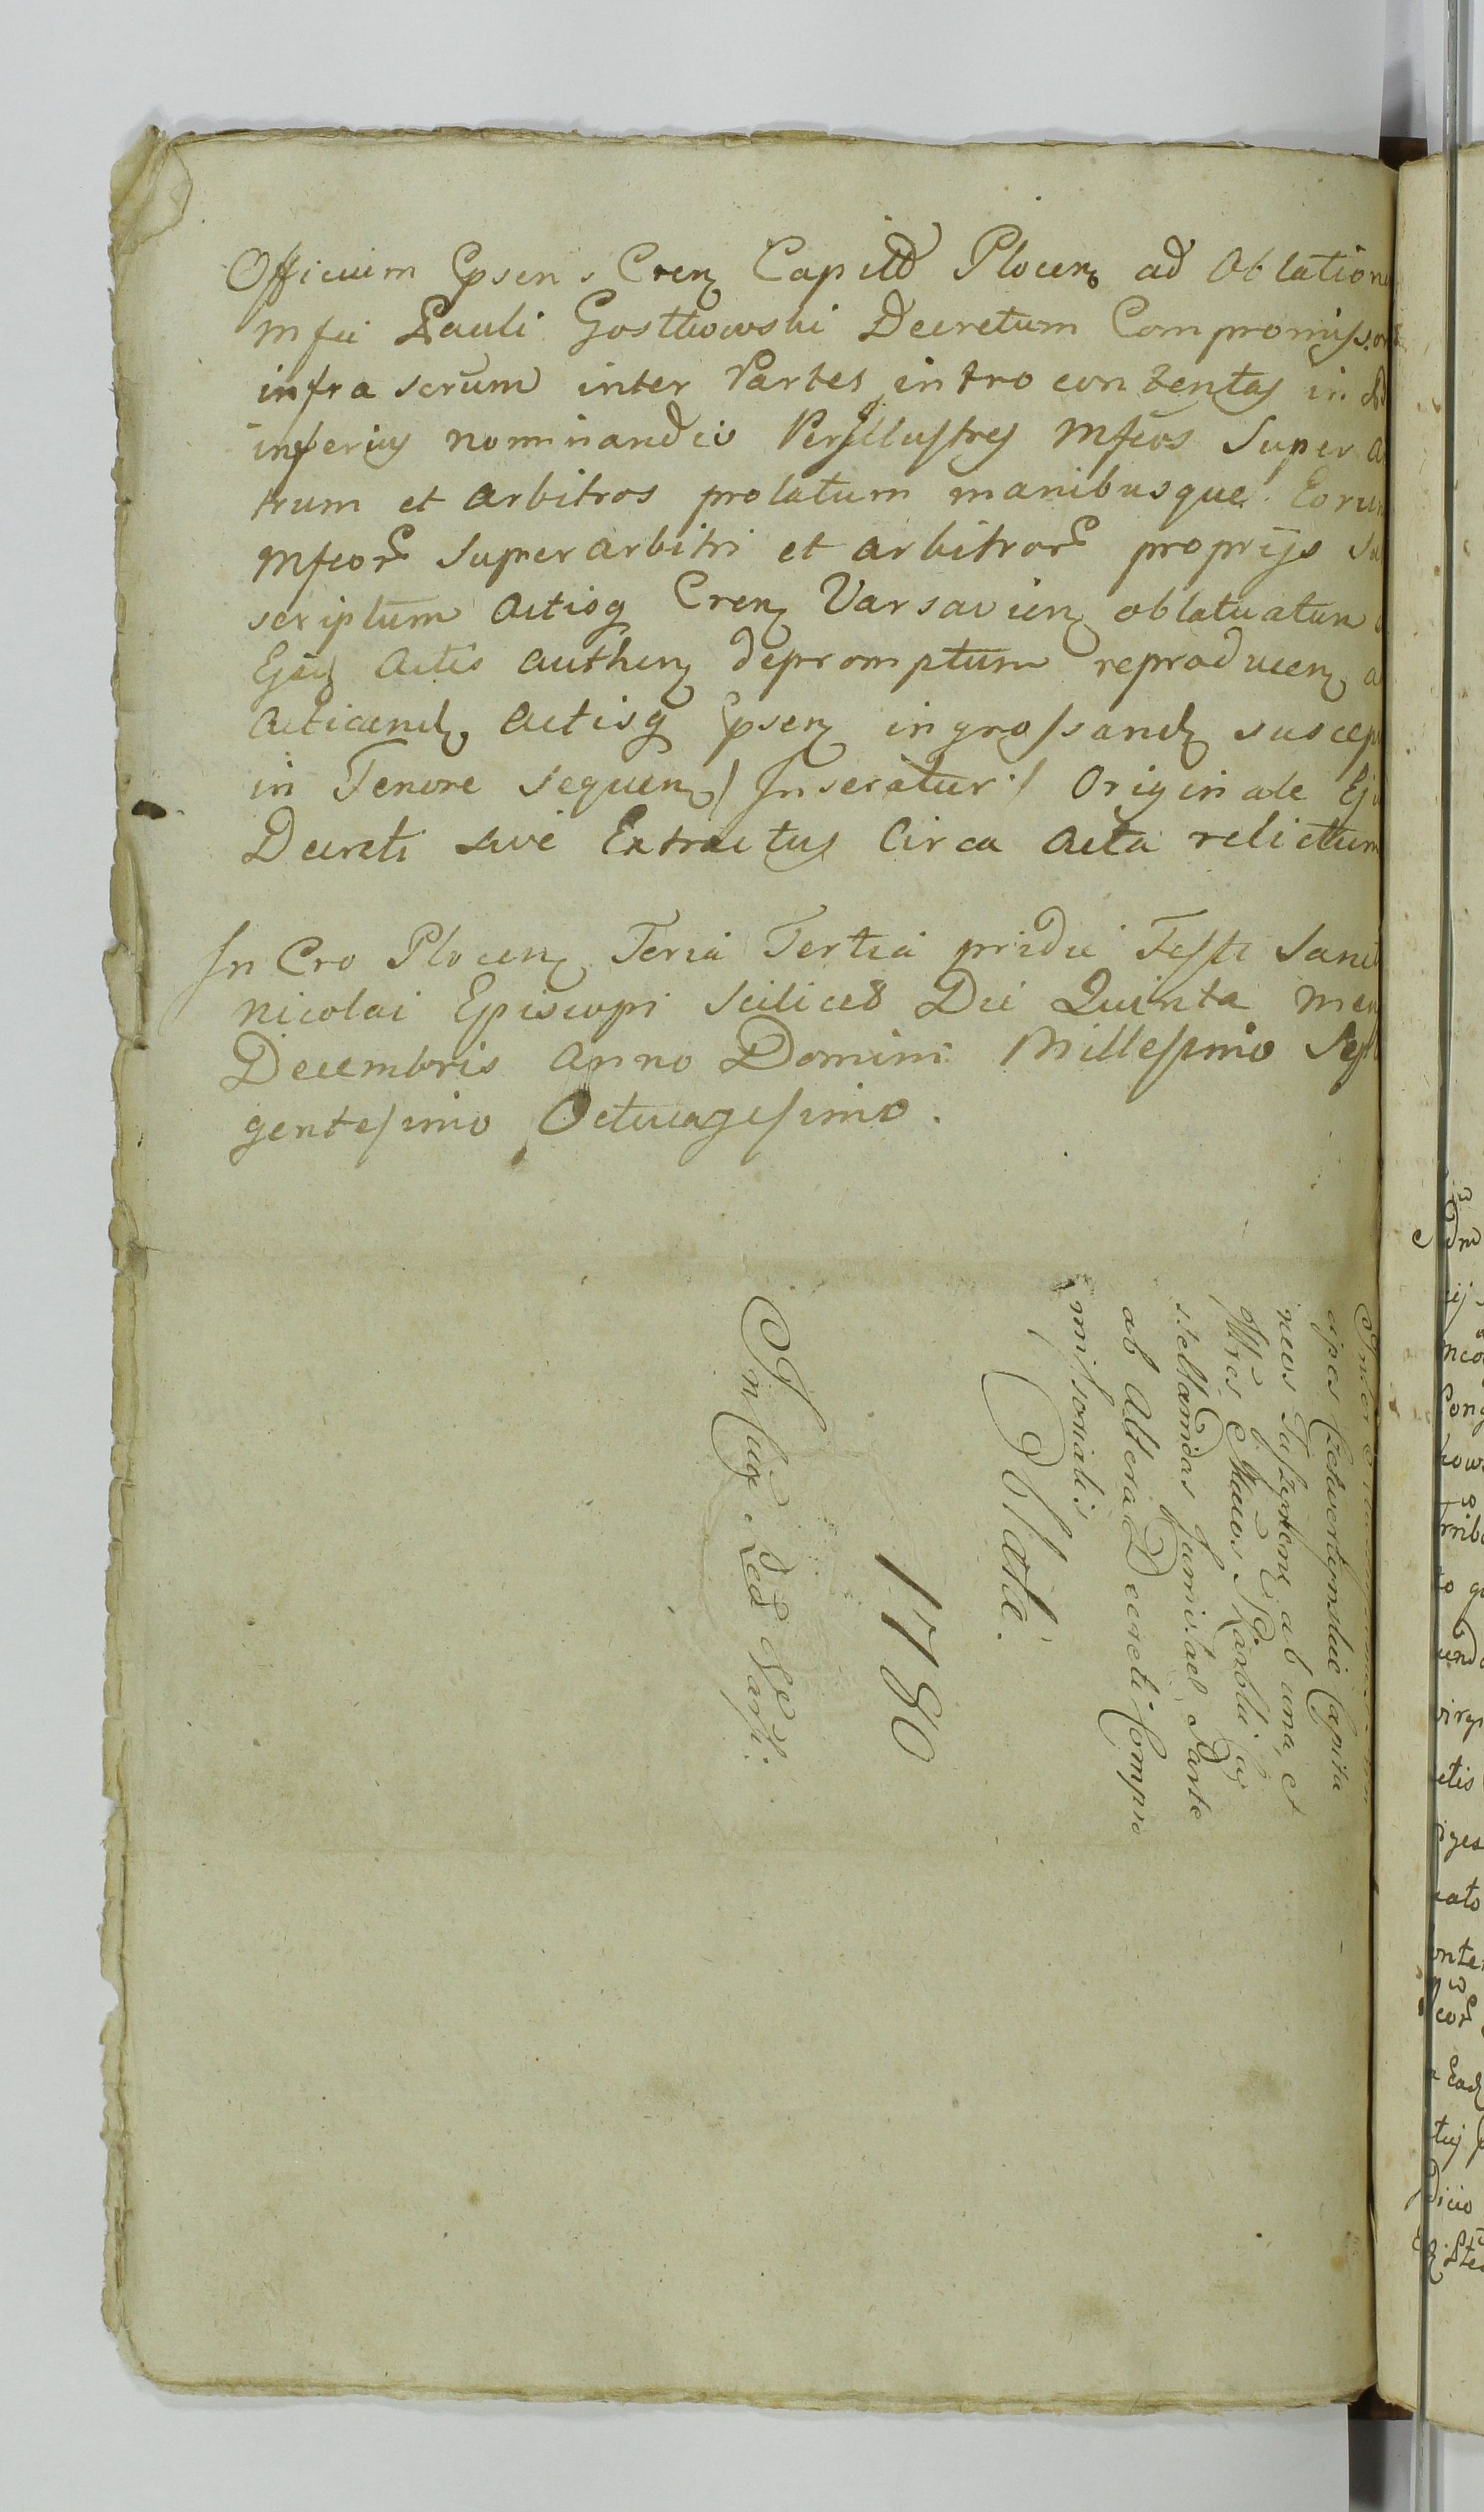 Officium Epsen. Cren Capitt Plocen ad Oblatione
Mfci Pauli Gostkowski Decretum Compromissor
infra scrum inter Partes intro contentas in
inferius nominandis Perillustres Mfcos Super a
trum et arbitros prolatum manibusque Eorum
Mfcor Superarbitri et arbitror proprijs su
scriptum actisq Cren Varsavien oblatuatum
Ejus Actis authen depromptum reproducen a
acticand, actisq Epsen ingrossand suscep
in Tenore sequen / Inseratur / Originale Ej
Decreti sive Extractus Circa acta relictum
In Cro Plocen Feria Tertia pridie Festi Sanct
Nicolai Episcopi scilicet Die Quinta men
Decembris Anno Domini Millesimo Sept
gentesimo Octuagesimo.
Inter
cipes Czetwertynskie Capita
neos ab una, et
Mfcos Skarbki
ab Altera Decreti Compro
missorialis
Oblata.
1780